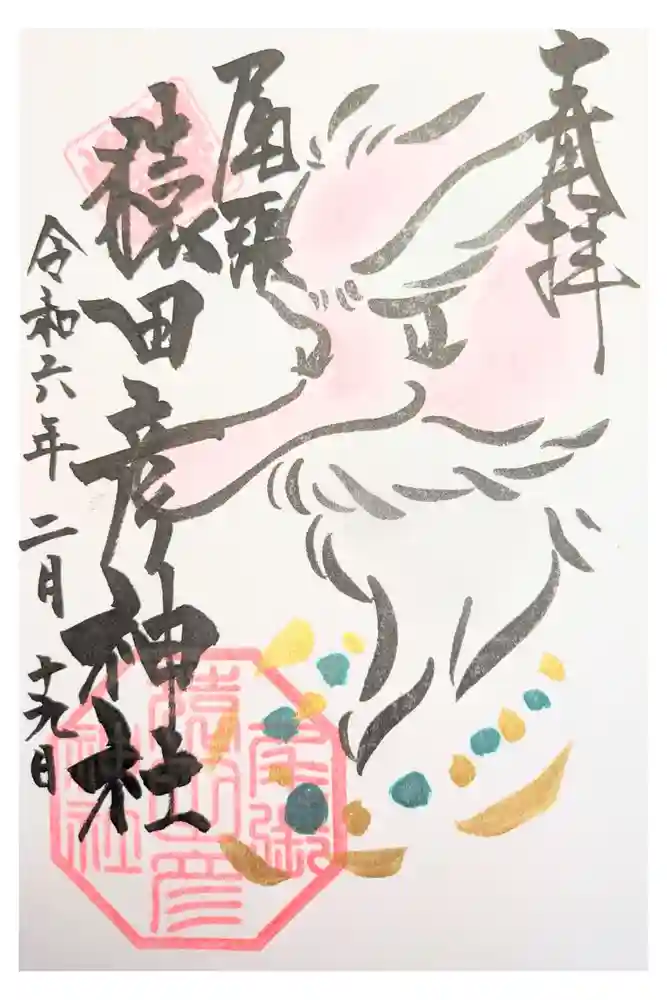 奉拝
尾張
猿田彦神社
令和六年 二月 十九日